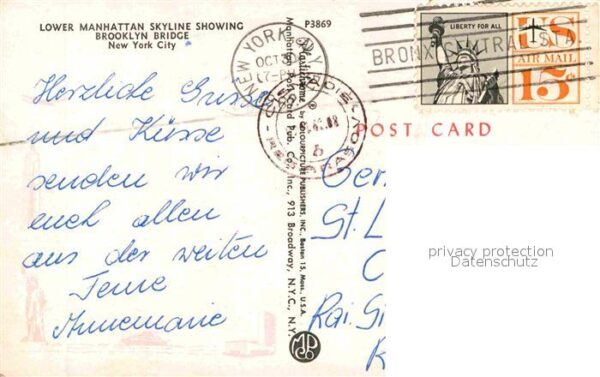 LOWER MANHATTAN SKYLINE SHOWING
BROOKLYN BRIDGE
New York City
P3869
Herzliche Grüsse
und Küsse
senden wir
euch allen
aus der weiten
Ferne
Annemarie
Plastichrome ® by COLOURPICTURE PUBLISHERS, INC., Boston 15, Mass., U.S.A.
Manhattan Post Card Pub. Co., Inc., 913 Broadway, N.Y.C., N.Y.
NEW YORK, N.Y.
OCT
BRONX CENTRAL STA
LIBERTY FOR ALL
US
AIR MAIL
15¢
POST CARD
Ger
St. L
C
Kai. Si
K
privacy protection
Datenschutz